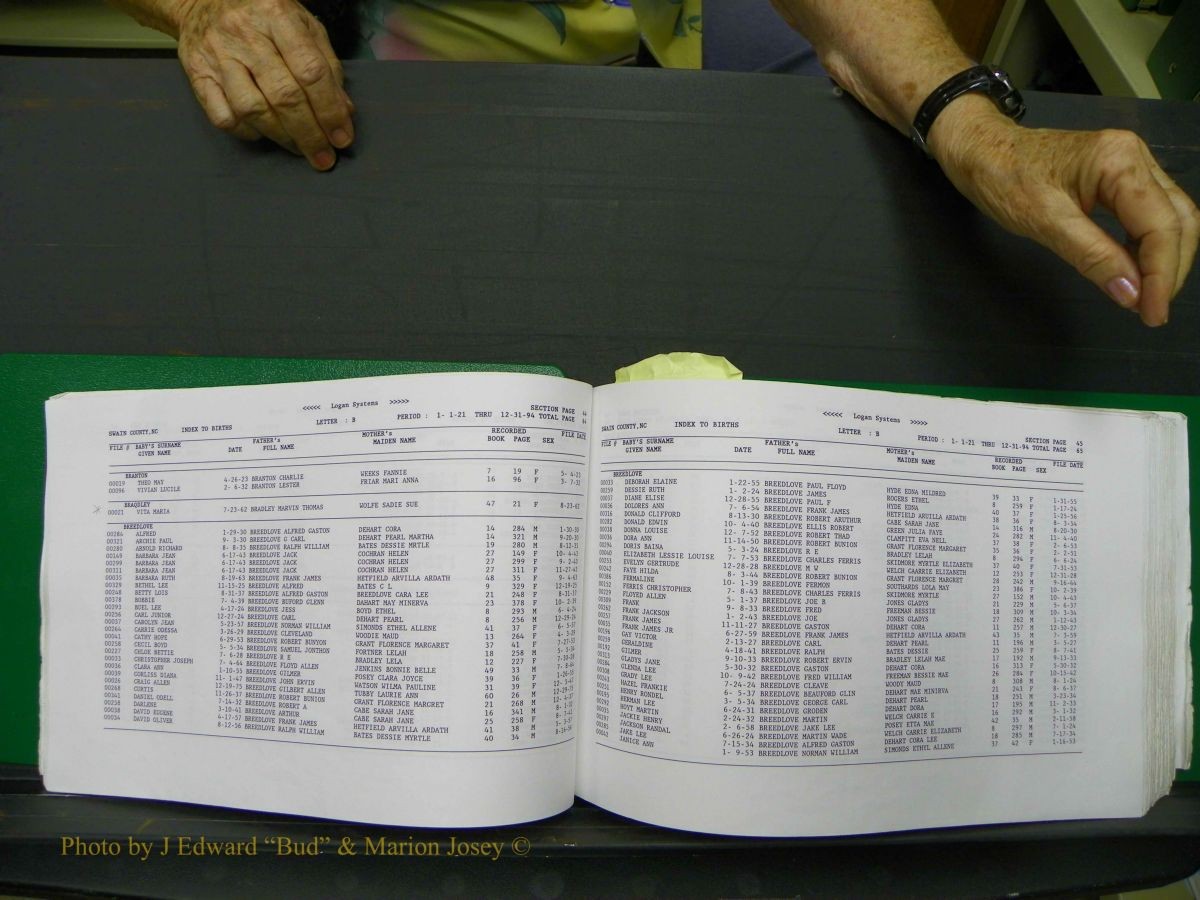 <<<<< Logan Systems >>>>>
SWAIN COUNTY,NC INDEX TO BIRTHS LETTER : B PERIOD : 1- 1-21 THRU 12-31-94 SECTION PAGE 44
TOTAL PAGE 64
FILE # BABY'S SURNAME GIVEN NAME DATE FATHER's FULL NAME MOTHER's MAIDEN NAME RECORDED BOOK PAGE SEX FILE DATE
BRANTON
00019 THEO MAY 4-26-23 BRANTON CHARLIE WEEKS FANNIE 7 19 F 5- 4-23
00096 VIVIAN LUCILE 2- 6-32 BRANTON LESTER FRIAR MARI ANNA 16 96 F 3- 7-32
BRAQDLEY
00021 VITA MARIA 7-23-62 BRADLEY MARVIN THOMAS WOLFE SADIE SUE 47 21 F 8-23-62
BREEDLOVE
00284 ALFRED 1-29-30 BREEDLOVE ALFRED GASTON DEHART CORA 14 284 M 1-30-30
00321 ARCHIE PAUL 9- 3-30 BREEDLOVE G CARL DEHART PEARL MARTHA 14 321 M 9-20-30
00280 ARNOLD RICHARD 8- 8-35 BREEDLOVE RALPH WILLIAM BATES DESSIE MRTLE 19 280 M 8-12-35
00149 BARBARA JEAN 6-17-43 BREEDLOVE JACK COCHRAN HELEN 27 149 F 10- 4-43
00299 BARBARA JEAN 6-17-43 BREEDLOVE JACK COCHRAN HELEN 27 299 F 9- 2-43
00311 BARBARA JEAN 6-17-43 BREEDLOVE JACK COCHRAN HELEN 27 311 F 11-27-43
00035 BARBARA RUTH 8-19-63 BREEDLOVE FRANK JAMES HETFIELD ARVILLA ARDATH 48 35 F 9- 4-63
00329 BETHEL LEE 11-15-25 BREEDLOVE ALFRED BATES C L 9 329 F 12-19-25
00248 BETTY LOIS 8-31-37 BREEDLOVE ALFRED GASTON BREEDLOVE CARA LEE 21 248 F 8-31-37
00378 BOBBIE 7- 4-39 BREEDLOVE BUFORD GLENN DAHART MAY MINERVA 23 378 F
00293 BUEL LEE 4-17-24 BREEDLOVE JESS BOYD ETHEL 8 293 M 6- 4-24
00256 CARL JUNIOR 12-27-24 BREEDLOVE CARL DEHART PEARL 8 256 M 12-29-24
00037 CAROLYN JEAN 5-23-57 BREEDLOVE NORMAN WILLIAM SIMONDS ETHEL ALLENE 41 37 F
00264 CARRIE ODESSA 3-26-29 BREEDLOVE CLEVELAND WOODIE MAUD 13 264 F
00041 CATHY HOPE 6-29-53 BREEDLOVE ROBERT BUNYON GRANT FLORENCE MARGARET 37 41 F
00258 CECIL BOYD 5- 5-34 BREEDLOVE SAMUEL JONTHON FORTNER LELAH 18 258 M
00227 CHLOE BETTIE 7- 6-28 BREEDLOVE R E BRADLEY LELA 12 227 F
00033 CHRISTOPHER JOSEPH 7- 4-64 BREEDLOVE FLOYD ALLEN JENKINS BONNIE BELLE 49 33 M
00036 CLARA ANN 1-10-55 BREEDLOVE GILMER POSEY CLARA JOYCE 39 36 F
00039 CORLISS DIANA 11- 1-47 BREEDLOVE JOHN ERVIN WATSON WILMA PAULINE 31 39 F
00026 CRAIG ALLEN 12-19-75 BREEDLOVE GILBERT ALLEN TUBBY LAURIE ANN 60 26 M
00268 CURTIS 11-26-37 BREEDLOVE ROBERT BUNION GRANT FLORENCE MARGRET 21 268 M
00341 DANIEL ODELL 7-14-32 BREEDLOVE ROBERT A CABE SARAH JANE 16 341 M
00258 DARLENE 3-10-41 BREEDLOVE ARTHUR CABE SARAH JANE 25 258 F
00038 DAVID EUGENE 4-17-57 BREEDLOVE FRANK JAMES HETFIELD ARVILLA ARDATH 41 38 M
00034 DAVID OLIVER 8-12-56 BREEDLOVE RALPH WILLIAM BATES DESSIE MYRTLE 40 34 M
<<<<< Logan Systems >>>>>
SWAIN COUNTY,NC INDEX TO BIRTHS LETTER : B PERIOD : 1- 1-21 THRU 12-31-94 SECTION PAGE 45
TOTAL PAGE 65
FILE # BABY'S SURNAME GIVEN NAME DATE FATHER's FULL NAME MOTHER's MAIDEN NAME RECORDED BOOK PAGE SEX FILE DATE
BREEDLOVE
00033 DEBORAH ELAINE 1-22-55 BREEDLOVE PAUL FLOYD HYDE EDNA MILDRED 39 33 F 1-31-55
00259 DESSIE RUTH 1- 2-24 BREEDLOVE JAMES ROGERS ETHEL 8 259 F 1-17-24
00037 DIANE ELISE 12-28-55 BREEDLOVE PAUL F HYDE EDNA 40 37 F 1-25-56
00036 DOLORES ANN 7- 6-54 BREEDLOVE FRANK JAMES HETFIELD ARUILLA ARDATH 38 36 F 8- 3-54
00316 DONALD CLIFFORD 8-13-30 BREEDLOVE ROBERT ARUTHUR CABE SARAH JANE 14 316 M 8-20-30
00282 DONALD EDWIN 10- 4-40 BREEDLOVE ELLIS ROBERT GREEN JULIA FAYE 24 282 M 11- 4-40
00038 DONNA LOUISE 12- 7-52 BREEDLOVE ROBERT THAD CLAMPITT EVA NELL 37 38 F 2- 6-53
00036 DORA ANN 11-14-50 BREEDLOVE ROBERT BUNION GRANT FLORENCE MARGARET 35 36 F 2- 2-51
00294 DORIS BAINA 5- 3-24 BREEDLOVE R E BRADLEY LELAH 8 294 F 6- 6-24
00040 ELIZABETH LESSIE LOUISE 7- 7-53 BREEDLOVE CHARLES FERRIS SKIDMORE MYRTLE ELIZABETH 37 40 F 7-31-53
00253 EVELYN GERTRUDE 12-28-28 BREEDLOVE M W WELCH CAARRIE ELIZABETH 12 253 F 12-31-28
00242 FAYE HILDA 8- 3-44 BREEDLOVE ROBERT BUNION GRANT FLORENCE MARGRET 28 242 M 9-16-44
00386 FERMALINE 10- 1-39 BREEDLOVE FERMON SOUTHARDS LOLA MAY 23 386 F 10- 2-39
00152 FERRIS CHRISTOPHER 7- 8-43 BREEDLOVE CHARLES FERRIS SKIDMORE MYRTLE 27 152 M 10- 4-43
00229 FLOYD ALLEN 5- 1-37 BREEDLOVE JOE B JONES GLADYS 21 229 M 5- 6-37
00309 FRANK 9- 8-33 BREEDLOVE FRED FREEMAN BESSIE 18 309 M 10- 3-34
00262 FRANK JACKSON 1- 2-43 BREEDLOVE JOE JONES GLADYS 27 262 M 1-12-43
00257 FRANK JAMES 11-11-27 BREEDLOVE GASTON DEHART CORA 11 257 M 12-30-27
00035 FRANK JAMES JR 6-27-59 BREEDLOVE FRANK JAMES HETFIELD ARVILLA ARDATH 43 35 M 7- 3-59
00196 GAY VICTOR 2-13-27 BREEDLOVE CARL DEHART PEARL 11 196 M 3- 5-27
00259 GERALDINE 4-18-41 BREEDLOVE RALPH BATES DESSIE 25 259 F 8- 7-41
00192 GILMER 9-10-33 BREEDLOVE ROBERT ERVIN BRADLEY LELAH MAE 17 192 M 9-13-33
00313 GLADYS JANE 5-30-32 BREEDLOVE GASTON DEHART CORA 16 313 F 5-30-32
00284 GLENDA LEE 10- 9-42 BREEDLOVE FRED WILLIAM FREEMAN BESSIE MAE 26 284 F 10-15-42
00308 GRADY LEE 7-24-24 BREEDLOVE CLEAVE WOODY MAUD 8 308 M 8- 1-24
00243 HAZEL FRANKIE 6- 5-37 BREEDLOVE BEAUFORD CLIN DEHART MAE MINIRVA 21 243 F 8- 6-37
00251 HENRY RONDEL 3- 5-34 BREEDLOVE GEORGE CARL DEHART PEARL 18 251 M 3-23-34
00195 HERMAN LEE 6-24-31 BREEDLOVE GRODEN DEHART DORA 17 195 M 11- 2-33
00292 HOYT MARTIN 2-24-32 BREEDLOVE MARTIN WELCH CARRIE E 16 292 M 3- 1-32
00035 JACKIE HENRY 2- 6-58 BREEDLOVE JAKE LEE POSEY ETTA MAE 42 35 M 2-11-58
00297 JACKSON RANDAL 6-26-24 BREEDLOVE MARTIN WADE WELCH CARRIE ELIZABETH 8 297 M 7- 1-24
00285 JAKE LEE 7-15-34 BREEDLOVE ALFRED GASTON DEHART CORA LEE 18 285 M 7-17-34
00042 JANICE ANN 1- 9-53 BREEDLOVE NORMAN WILLIAM SIMONDS ETHYL ALLENE 37 42 F 1-16-53
Photo by J Edward “Bud” & Marion Josey ©